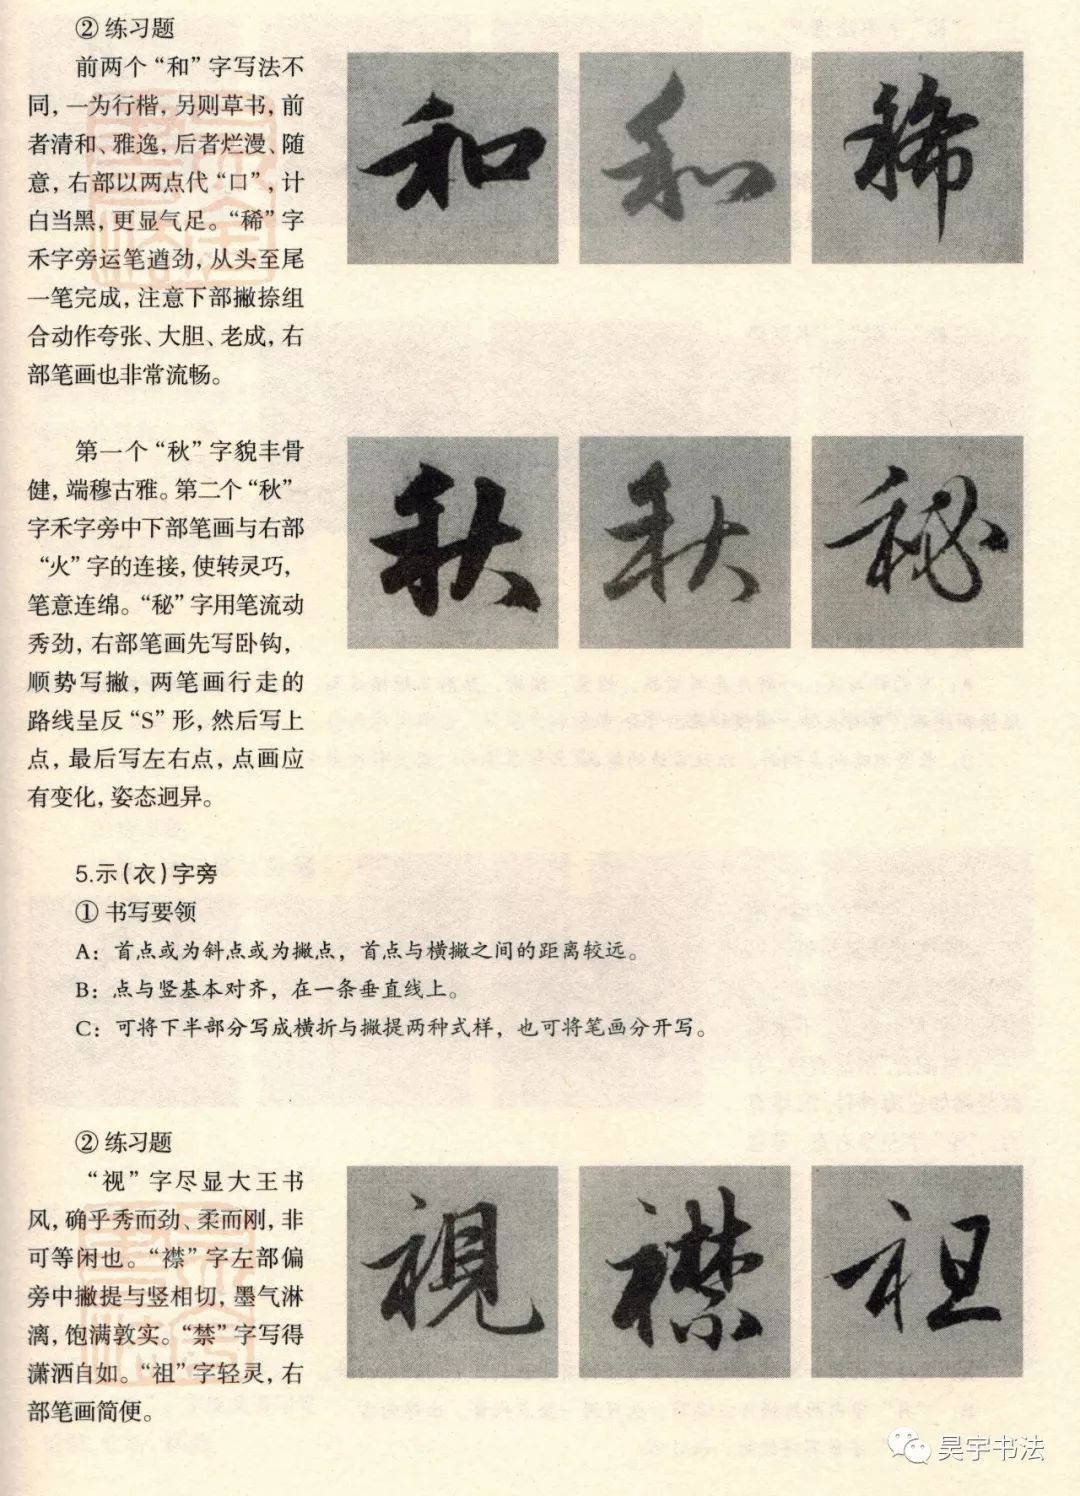 ② 练习题
前两个“和”字写法不
同，一为行楷，另则草书，前
者清和、雅逸，后者烂漫、随
意，右部以两点代“口”，计
白当黑，更显气足。“稀”字
禾字旁运笔遒劲，从头至尾
一笔完成，注意下部撇捺组
合动作夸张、大胆、老成，右
部笔画也非常流畅。
和 和 稀
第一个“秋”字貌丰骨
健，端穆古雅。第二个“秋”
字禾字旁中下部笔画与右部
“火”字的连接，使转灵巧，
笔意连绵。“秘”字用笔流动
秀劲，右部笔画先写卧钩，
顺势写撇，两笔画行走的
路线呈反“S”形，然后写上
点，最后写左右点，点画应
有变化，姿态迥异。
秋 秋 秘
5.示(衣)字旁
① 书写要领
A：首点或为斜点或为撇点，首点与横撇之间的距离较远。
B：点与竖基本对齐，在一条垂直线上。
C：可将下半部分写成横折与撇提两种式样，也可将笔画分开写。
② 练习题
“视”字尽显大王书
风，确乎秀而劲、柔而刚，非
可等闲也。“襟”字左部偏
旁中撇提与竖相切，墨气淋
漓，饱满敦实。“禁”字写得
潇洒自如。“祖”字轻灵，右
部笔画简便。
視 襟 祖
昊宇书法